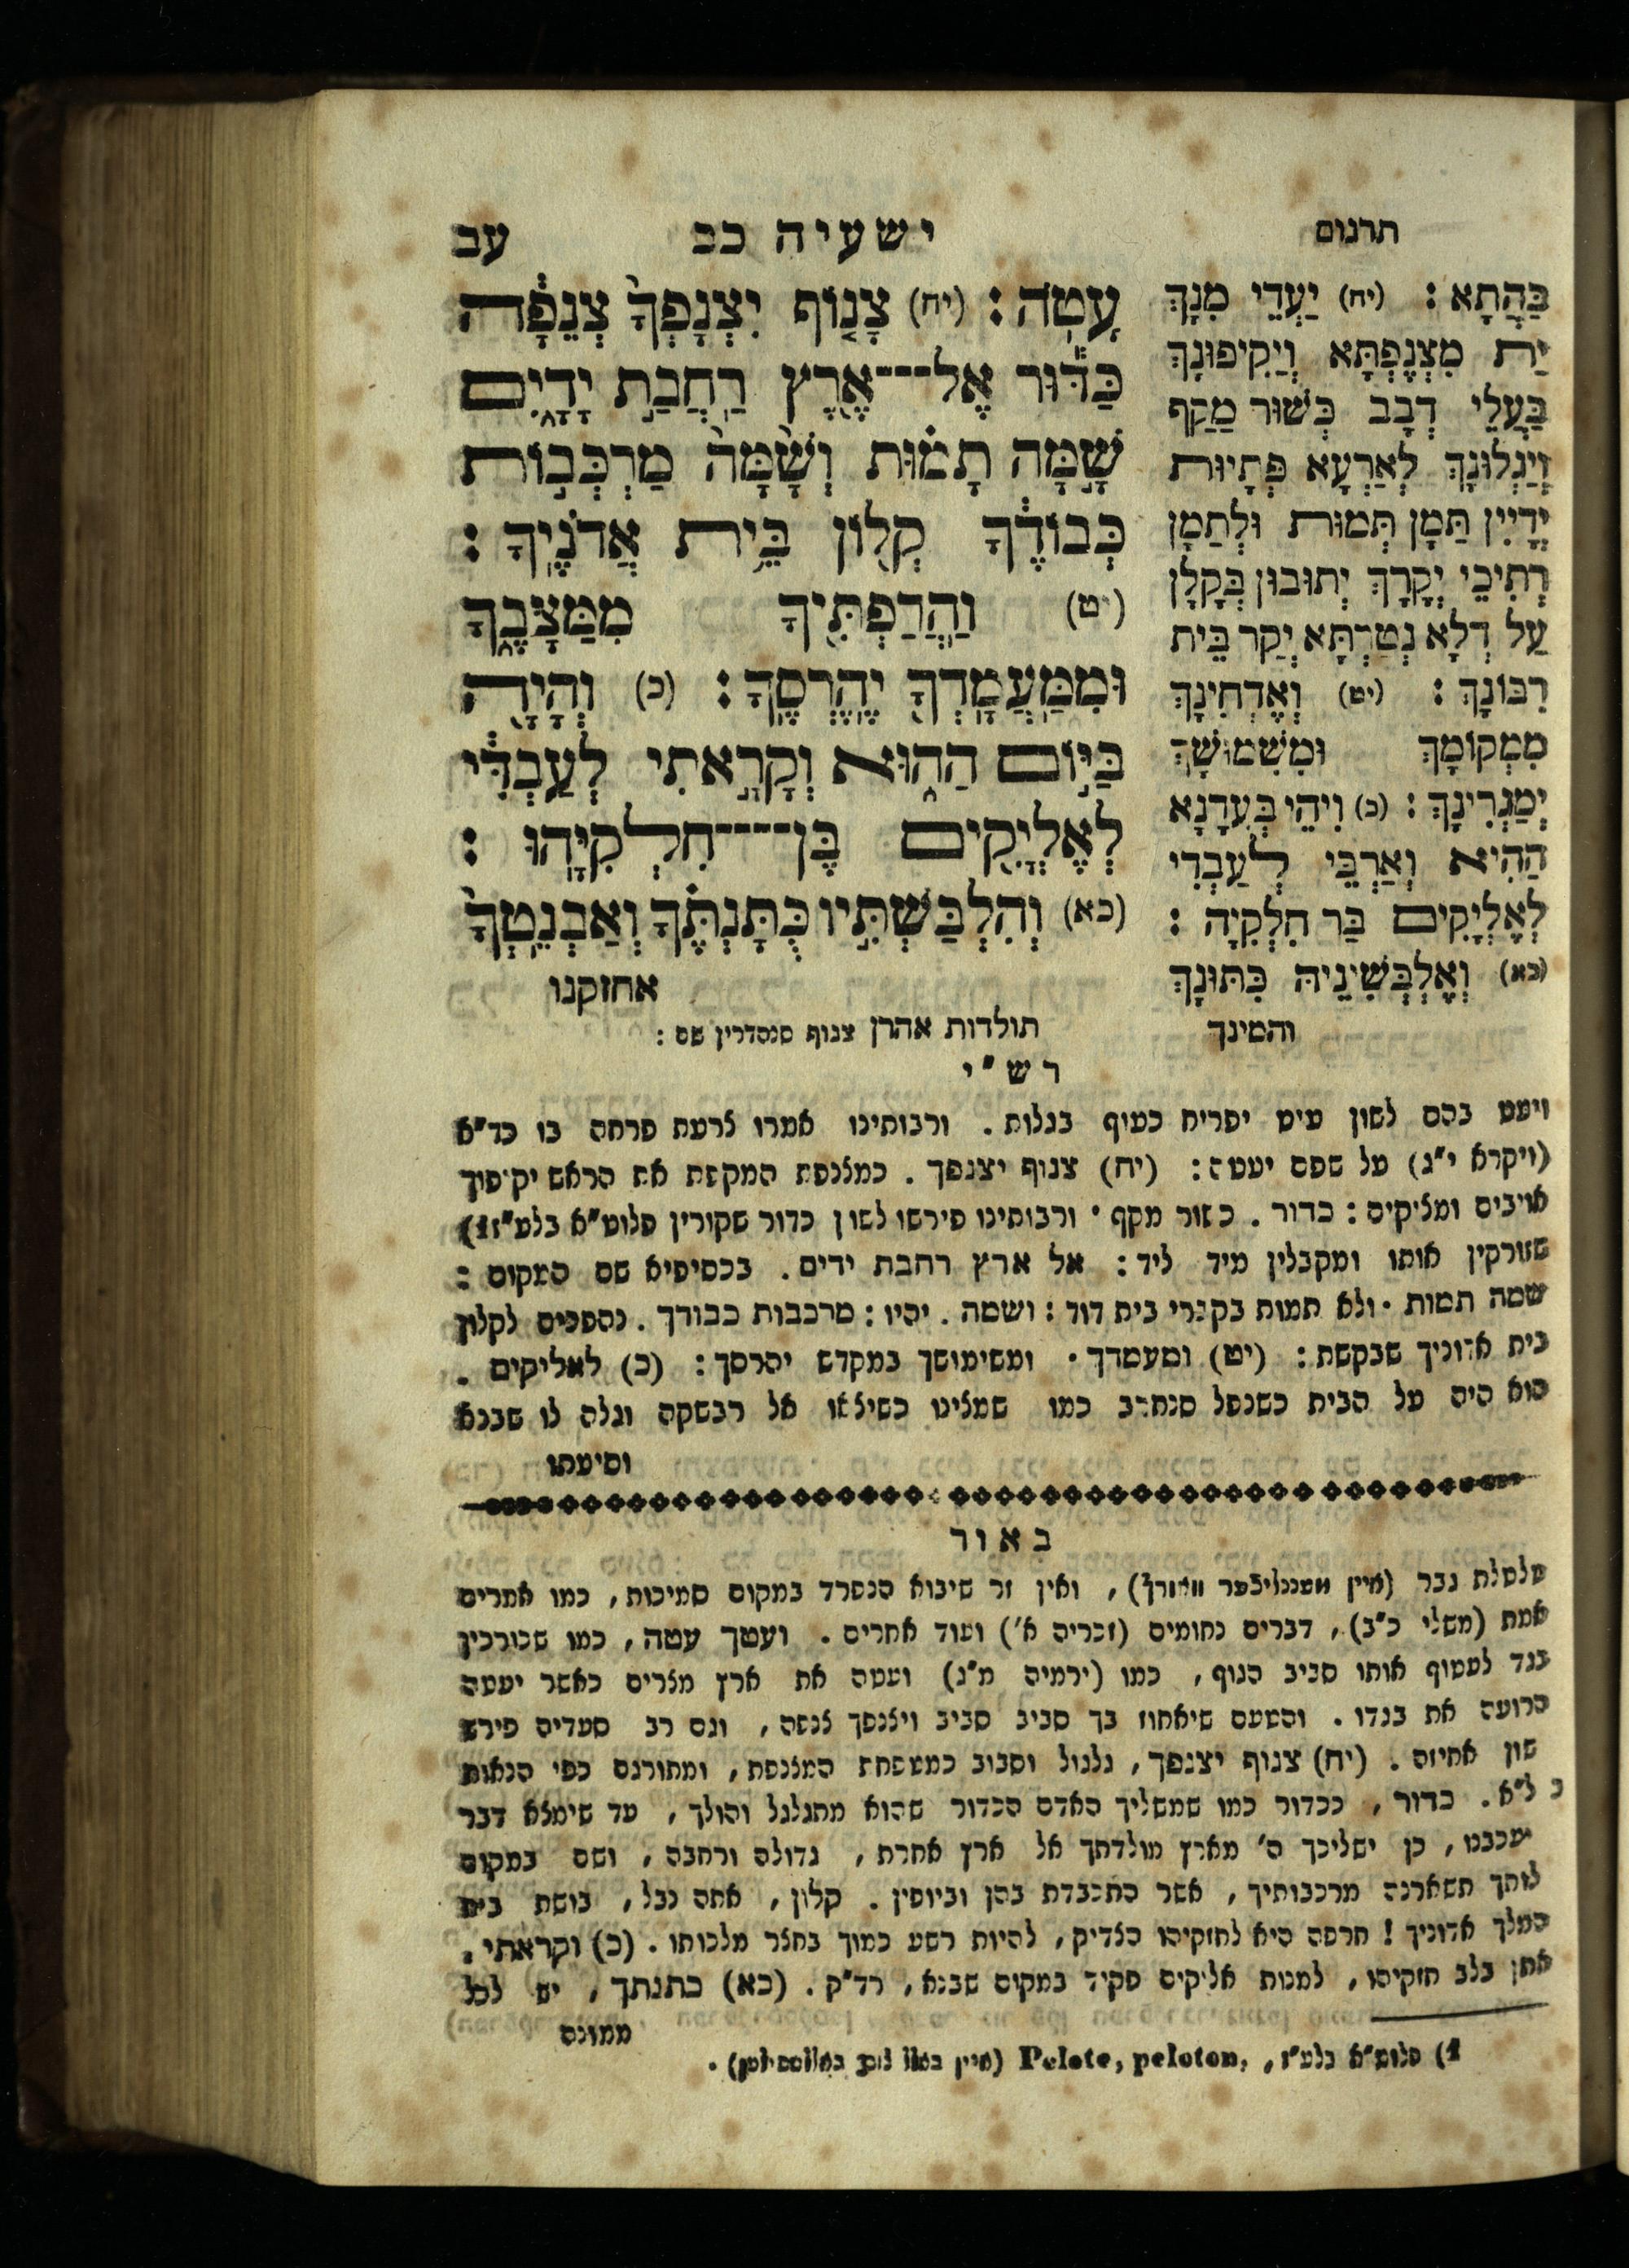 תרגום
ישעיה כב
עב
עָֽטֹה׃ (יח) צָנ֤וֹף יִצְנָפְךָ֙ צְנֵפָ֔ה
כַּדּ֕וּר אֶל־אֶ֖רֶץ רַחֲבַ֣ת יָדָ֑יִם
שָׁ֣מָּה תָמ֗וּת וְשָׁ֙מָּה֙ מַרְכְּב֣וֹת
כְּבוֹדֶ֔ךָ קְל֖וֹן בֵּ֥ית אֲדֹנֶֽיךָ׃
(יט) וַהֲדַפְתִּ֖יךָ מִמַּצָּבֶ֑ךָ
וּמִמַּעֲמָדְךָ֖ יֶהֶרְסֶֽךָ׃ (כ) וְהָיָ֖ה
בַּיּ֣וֹם הַה֑וּא וְקָרָ֣אתִי לְעַבְדִּ֔י
לְאֶלְיָקִ֖ים בֶּן־חִלְקִיָּֽהוּ׃
(כא) וְהִלְבַּשְׁתִּ֣יו כֻּתָּנְתֶּ֗ךָ וְאַבְנֵֽטְךָ֙
אחזקנו
בַּהֲתָא׃ (יח) יַעְדֵי מִנָךְ
יַת מִצְנֶפְתָּא וְיַקִיפוּנָךְ
בַּעֲלֵי דְבָב כְּשׁוּר מַקַף
וְיַגְלוּנָךְ לְאַרְעָא פְּתָיוּת
יְדָיִין תַּמָן תְּמוּת וּלְתַמָן
רְתִיכֵי יְקָרָךְ יְתוּבוּן בְּקָלָן
עַל דְלָא נְטַרְתָּא יְקַר בֵּית
רִבּוֹנָךְ׃ (יט) וְאֶדְחִינָךְ
מִמְקוֹמָךְ וּמִשִׁמוּשָׁךְ
יְמַגְרִינָךְ׃ (כ) וִיהֵי בְּעִדָנָא
הַהִיא וְאַרְבֵּי לְעַבְדִי
לְאֶלְיָקִים בַּר חִלְקִיָה׃
(כא) וְאֶלְבְּשִׁינֵיהּ כִּתּוּנָךְ
והמינך
תולדות אהרן צנוף סנהדרין שם:
רש"י
ויעט בהם לשון עיט יפריח כעוף בגלות. ורבותינו אמרו צרעת פרחה בו כד"א
(ויקרא י"ג) על שפם יעטה: (יח) צנוף יצנפך. כמצנפת המקפת את הראש יקיפוך
אויבים ומציקים: כדור. כשור מקף. ורבותינו פירשו לשון כדור שקורין פלוט"א בלע"ז1)
שזורקין אותו ומקבלין מיד ליד: אל ארץ רחבת ידים. בכסיפיא שם המקום:
שמה תמות. ולא תמות בקברי בית דוד: ושמה. יהיו: מרכבות כבודך. נהפכים לקלון
בית אדוניך שבקשת: (יט) וממעמדך. ומשימושך במקדש יהרסך: (כ) לאליקים.
הוא היה על הבית כשנפל סנחרב כמו שמצינו כשיצאו אל רבשקה וגלה לו שבנא
וסיעתו
באור
טלטלת גבר, ואין זר שיבוא הנפרד במקום סמיכות, כמו אמרים
אמת (משלי כ"ב), דברים נחומים (זכריה א') ועוד אחרים. ועטך עטה, כמו שכורכין
בגד לעטוף אותו סביב הגוף, כמו (ירמיה מ"ג) ועטה את ארץ מצרים כאשר יעטה
הרועה את בגדו. והטעם שיאחוז בך סביב סביב ויצנפך צנפה, וגם רב סעדיה פירש
שון אחיזה. (יח) צנוף יצנפך, גלגול וסבוב כמצנפת, ומתורגם כפי הנאות
כדור, ככדור כמו שמשליך האדם הכדור שהוא מתגלגל והולך, עד שימצא דבר
יעכבנו, כן ישליכך ה' מארץ מולדתך אל ארץ אחרת, גדולה ורחבה, ושם במקום
מותך תשארנה מרכבותיך, אשר התכבדת בהן וביופין. קלון, אתה נבל, בושת בית
המלך אדוניך! חרפה היא לחזקיהו הצדיק, להיות רשע כמוך בחצר מלכותו. (כ) וקראתי,
אתן בלב חזקיהו, למנות אליקים פקיד במקום שבנא, רד"ק. (כא) כתנתך, יש לכל
ממונה
1) פלוט"א בלע"ז, Pelote, peloton,